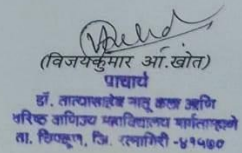 (विजयकुमार आ. खोत)
प्राचार्य
डॉ. तात्यासाहेब नातू कला आणि
वरिष्ठ वाणिज्य महाविद्यालय मार्गताम्हाने
ता. चिपळूण, जि. रत्नागिरी -